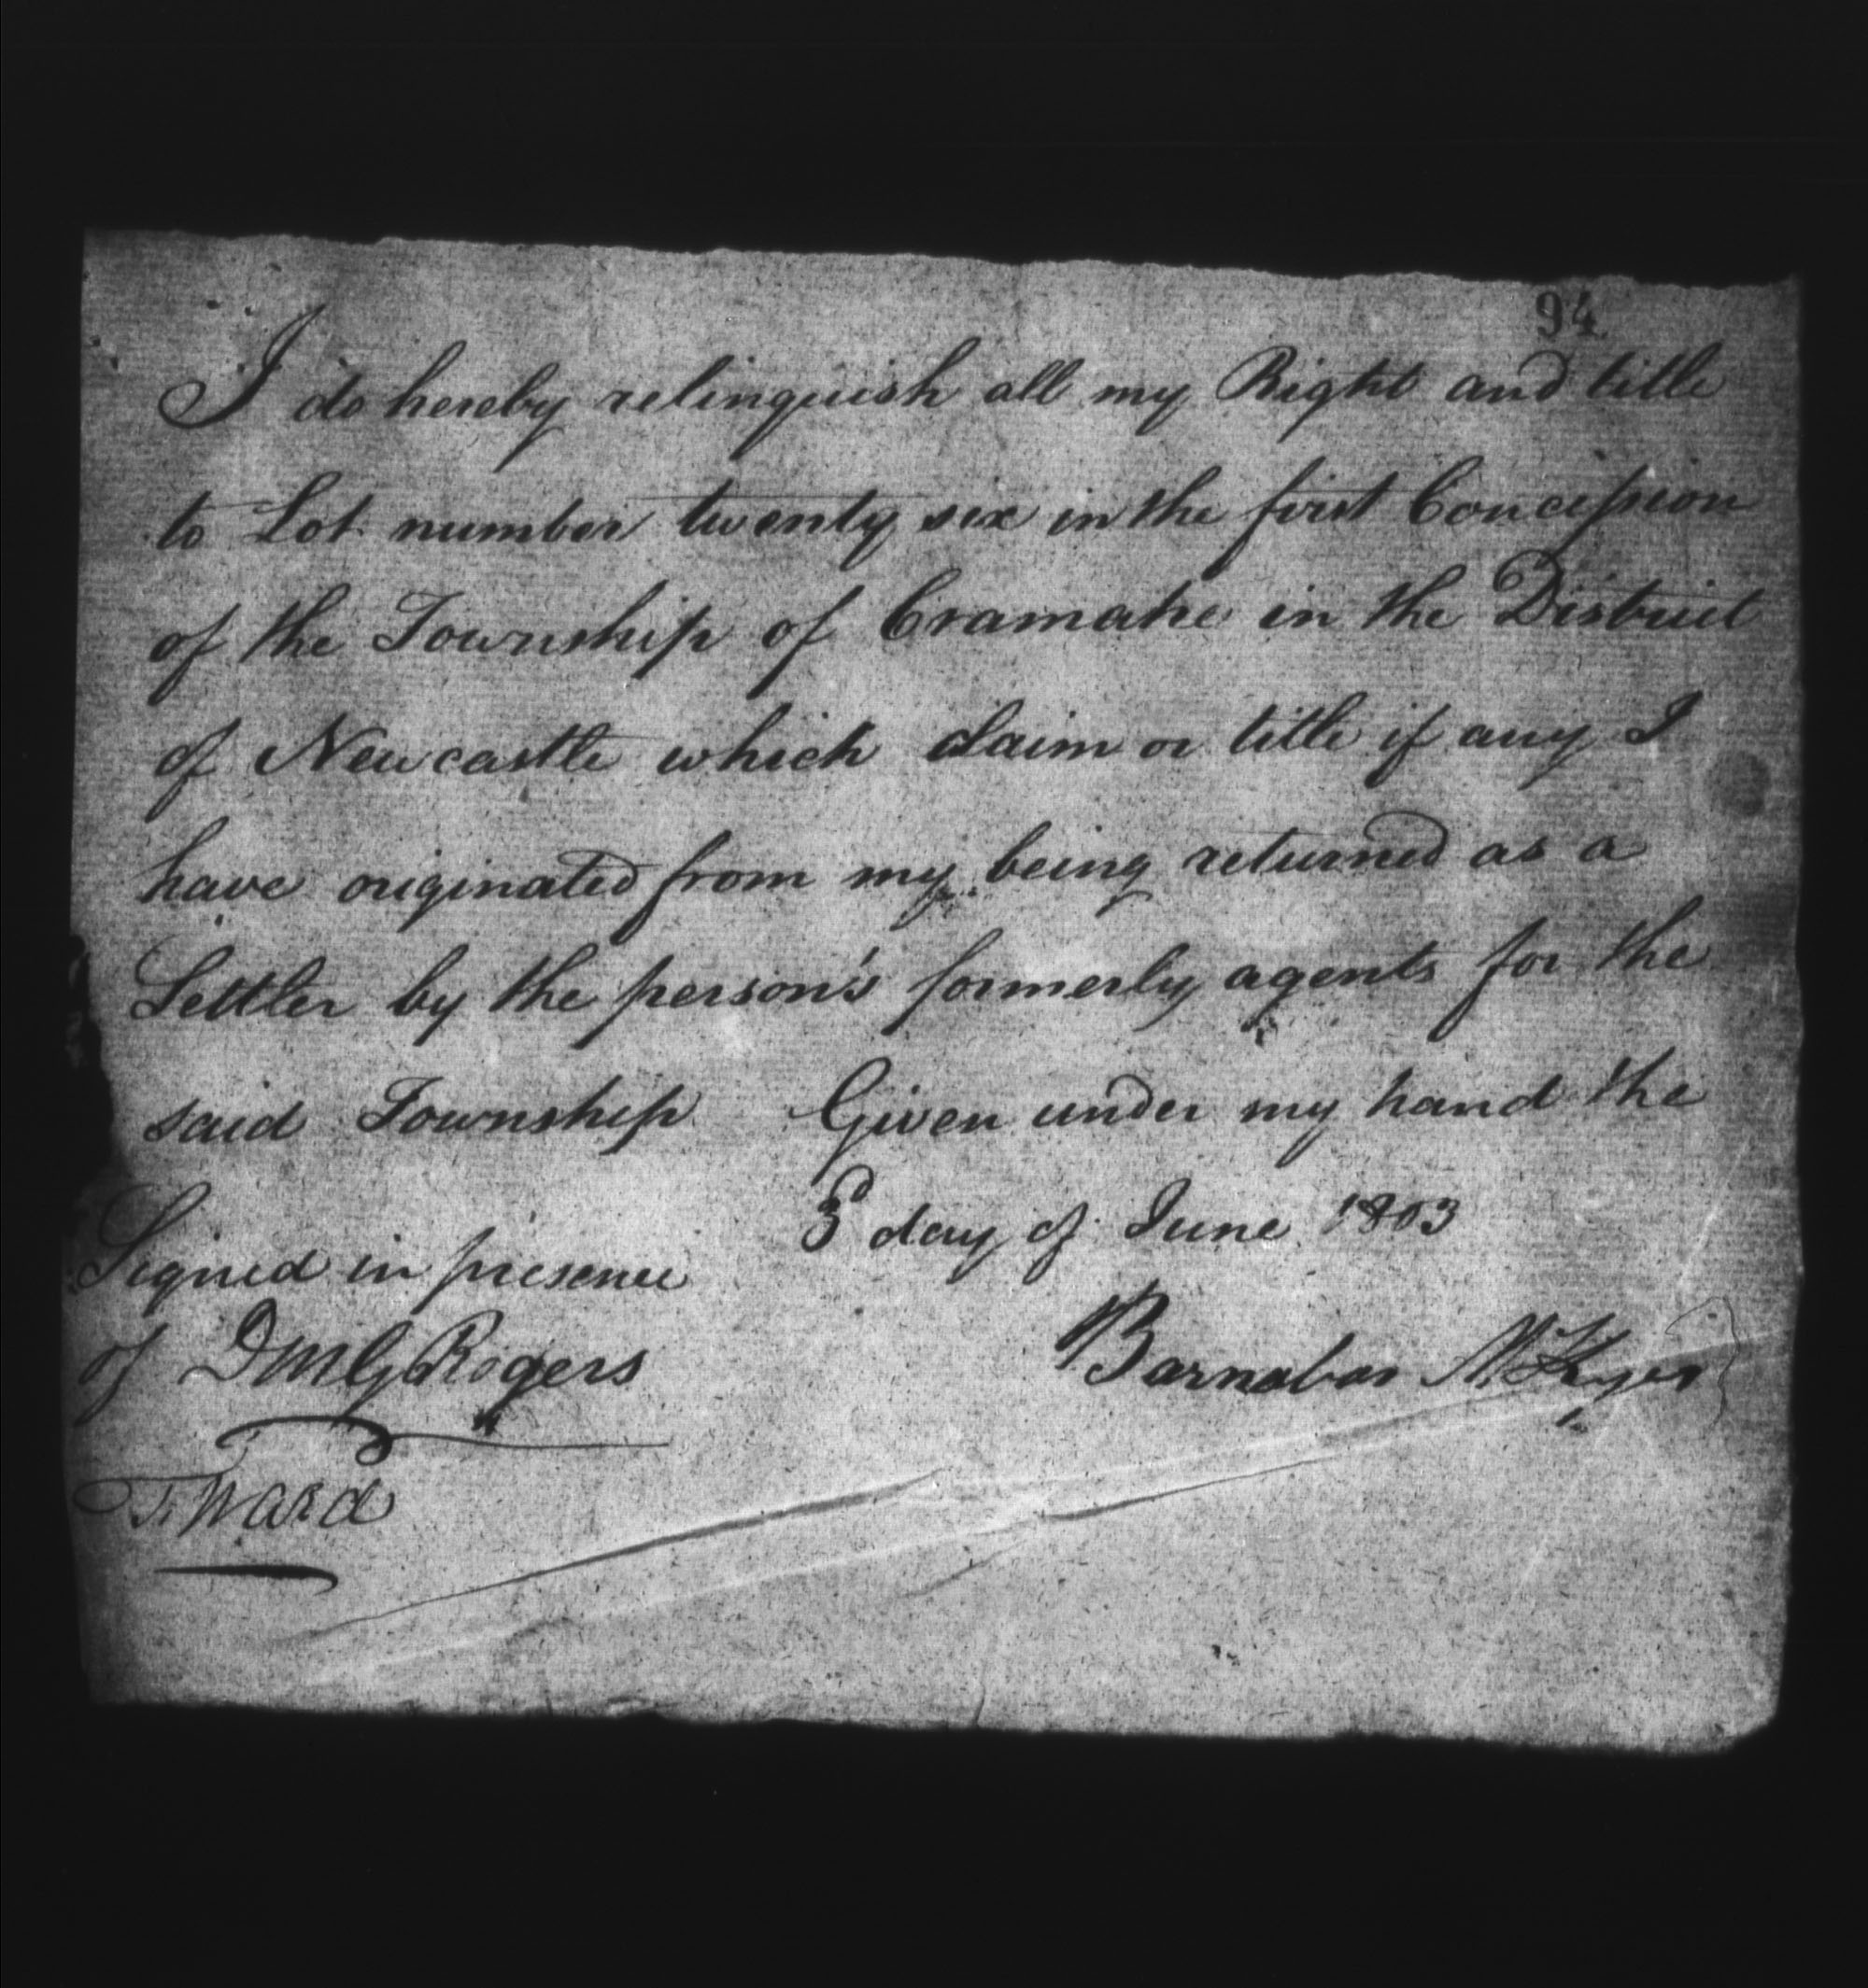 94
I do hereby relinquish all my Right and title
to Lot number twenty six in the first Concession
of the Township of Cramahe in the District
of Newcastle which claim or title if any I
have originated from my being returned as a
Settler by the person's formerly agents for the
said Township Given under my hand the
3d day of June 1803
Signed in presence
of DMG Rogers
Barnabas McKyes
T. Ward